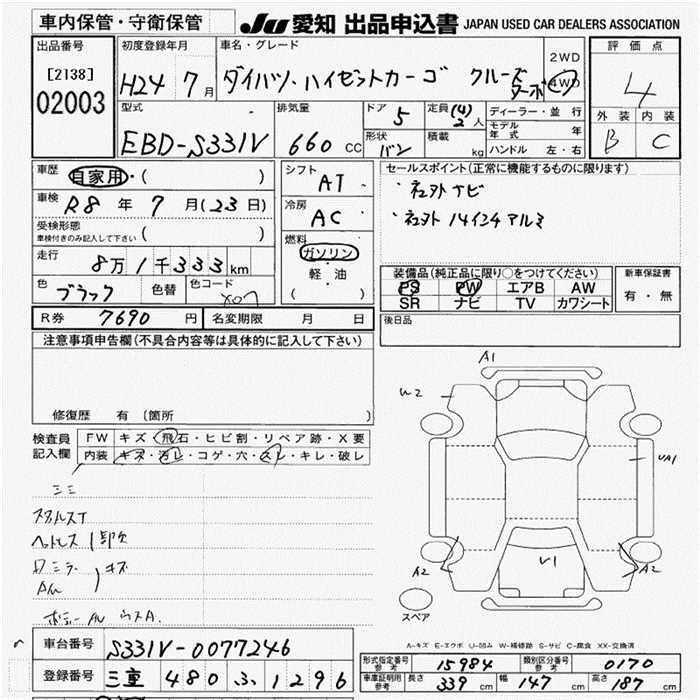 車内保管・守衛保管
JU 愛知 出品申込書 JAPAN USED CAR DEALERS ASSOCIATION
出品番号
[2138]
02003
初度登録年月
H24 7月
車名・グレード
ダイハツ・ハイゼットカーゴ クルーズターボ
2WD
4WD
評価点
4
外装 内装
B C
型式
EBD-S331V
排気量
660 CC
ドア 5
定員 (4) 2 人
形状 バン
積載 kg
ディーラー・並行
モデル年式 年
ハンドル 左・右
車歴 自家用・( )
車検 R8年 7月(23日)
受検形態
車検付きのみ記入して下さい ( )
走行 8万1千333km
色 ブラック 色替 色コード X07
シフト AT
冷房 AC
燃料
ガソリン
軽・油
( )
セールスポイント(正常に機能するものに限ります)
・社外ナビ
・社外14インチアルミ
装備品(純正品に限り○をつけてください)
PS PW エアB AW
SR ナビ TV カワシート
新車保証書
有・無
R券 7690円 名変期限 月 日
後日品
注意事項申告欄(不具合内容等は具体的に記入して下さい)
修復歴 有(箇所 )
検査員記入欄
FW キズ・飛石・ヒビ割・リペア跡・X要
内装 キズ・汚レ・コゲ・穴・スレ・キレ・破レ
A1
W2
UA1
A2
V1
A2
スペア
A-キズ E-エクボ U-凹み W-補修跡 S-サビ C-腐食 XX-交換済
車台番号 S331V-0077246
登録番号 三重 480 ふ 1296
形式指定番号 参考 15984 類別区分番号 参考 0170
車庫証明用 参考 長さ 339cm 幅 147cm 高さ 187cm